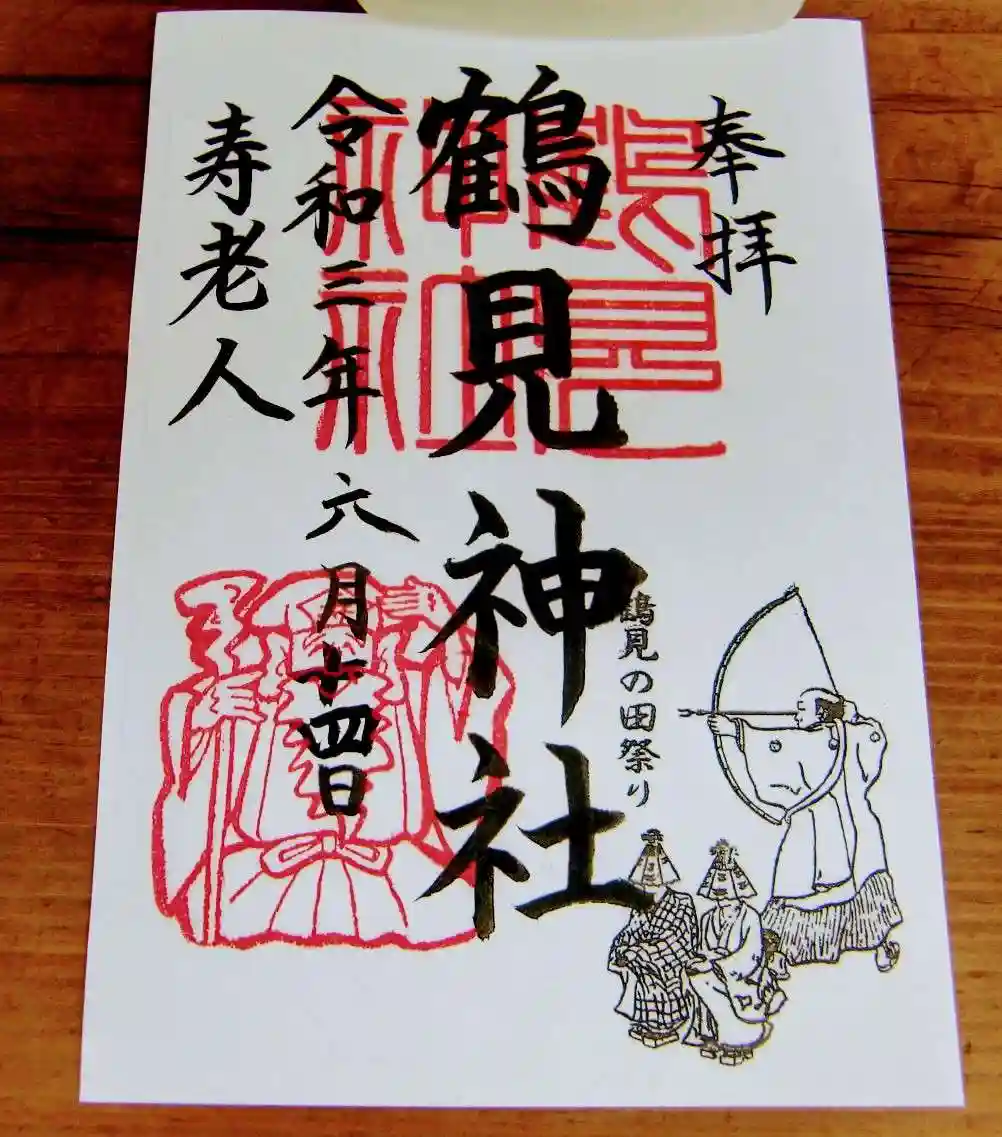 奉拝
鶴見神社
鶴見の田祭り
令和三年六月十四日
寿老人
鶴見神社